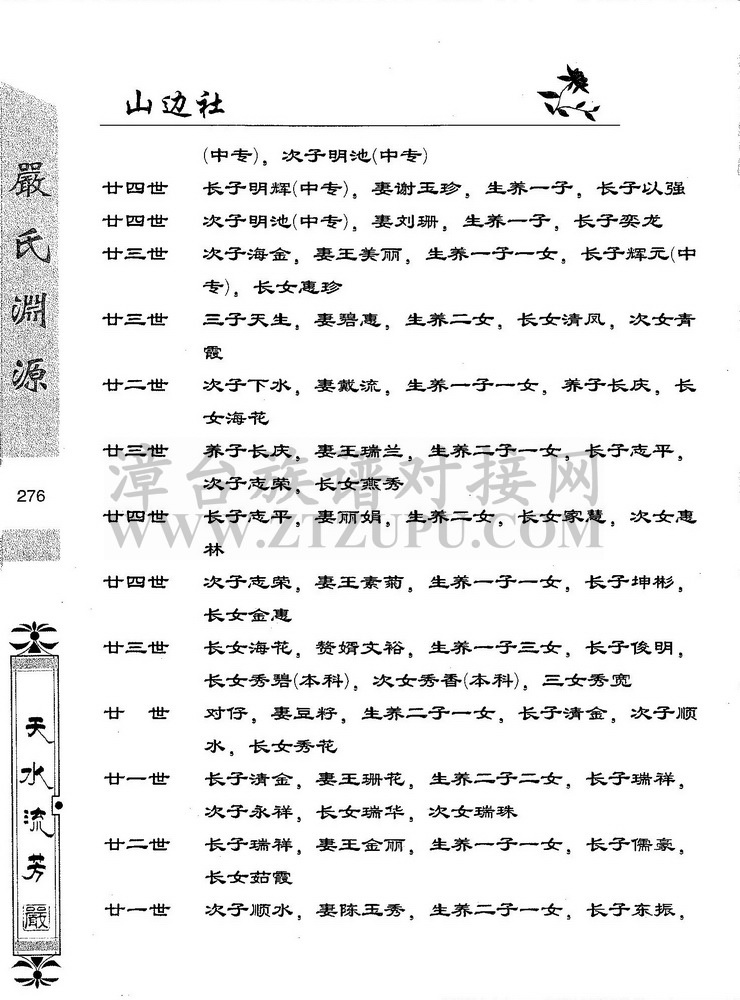 山边社
(中专)，次子明池(中专)
廿四世 长子明辉(中专)，妻谢玉珍，生养一子，长子以强
廿四世 次子明池(中专)，妻刘珊，生养一子，长子奕龙
廿三世 次子海金，妻王美丽，生养一子一女，长子辉元(中
专)，长女惠珍
廿三世 三子天生，妻碧惠，生养二女，长女清凤，次女青
霞
廿二世 次子下水，妻戴流，生养一子一女，养子长庆，长
女海花
廿三世 养子长庆，妻王瑞兰，生养二子一女，长子志平，
次子志荣，长女燕秀
廿四世 长子志平，妻丽娟，生养二女，长女家慧，次女惠
林
廿四世 次子志荣，妻王素菊，生养一子一女，长子坤彬，
长女金惠
廿三世 长女海花，赘婿文裕，生养一子三女，长子俊明，
长女秀碧(本科)，次女秀香(本科)，三女秀宽
廿 世 对仔，妻豆籽，生养二子一女，长子清金，次子顺
水，长女秀花
廿一世 长子清金，妻王珊花，生养二子二女，长子瑞祥，
次子永祥，长女瑞华，次女瑞珠
廿二世 长子瑞祥，妻王金丽，生养一子一女，长子儒豪，
长女茹霞
廿一世 次子顺水，妻陈玉秀，生养二子一女，长子东振，
嚴氏淵源
276
天水流芳
嚴
漳台族谱对接网
WWW.ZTZUPU.COM